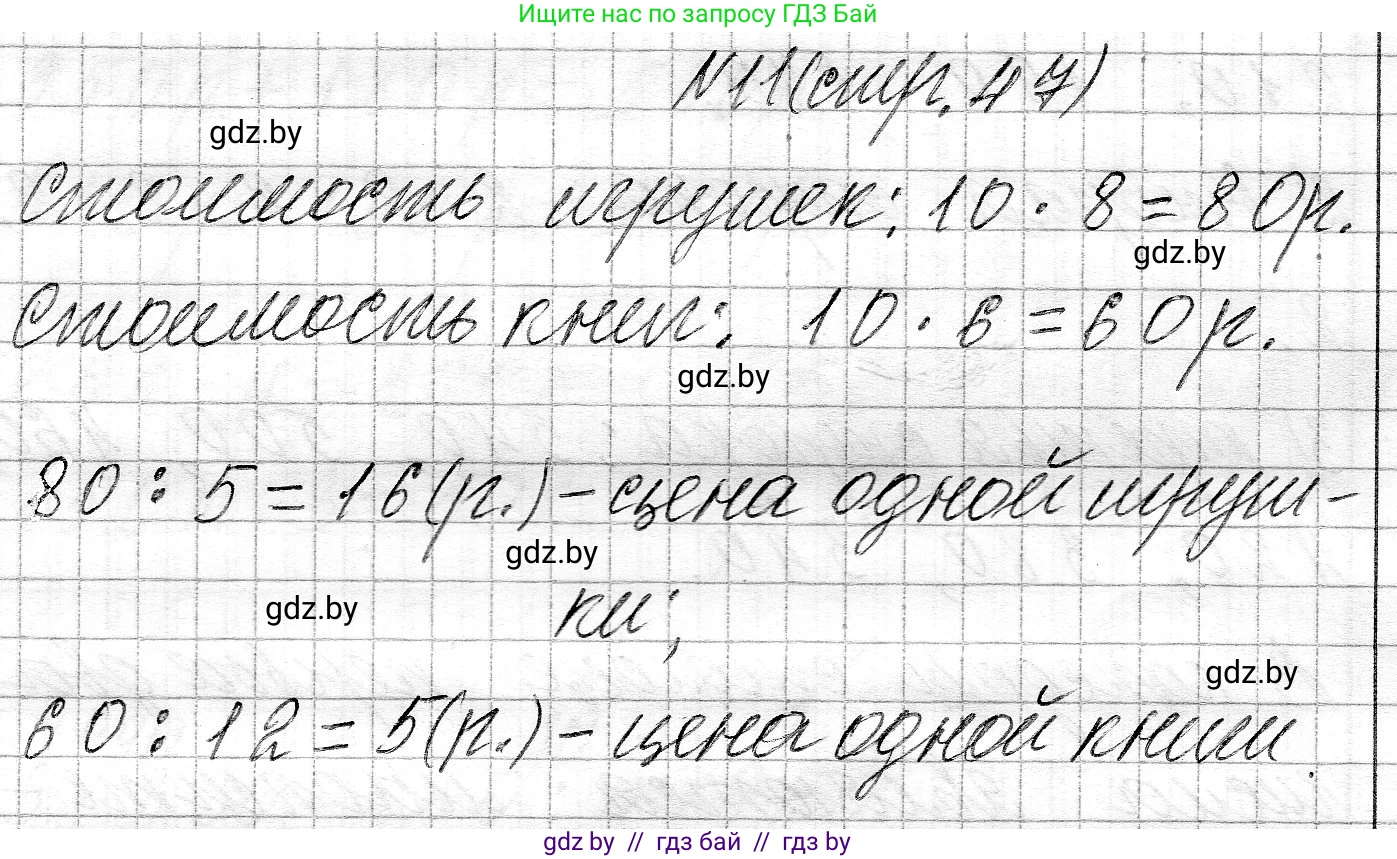 Ищите нас по запросу ГДЗ Бай
N11(стр. 47)
gdz.by
Стоимость игрушек: 10 · 8 = 80р.
gdz.by
Стоимость книг: 10 · 6 = 60р.
gdz.by
80 : 5 = 16(р.) – цена одной игруш-
gdz.by
ки;
gdz.by
gdz.by
60 : 12 = 5(р.) – цена одной книги.
gdz by // гдз бай // гдз by